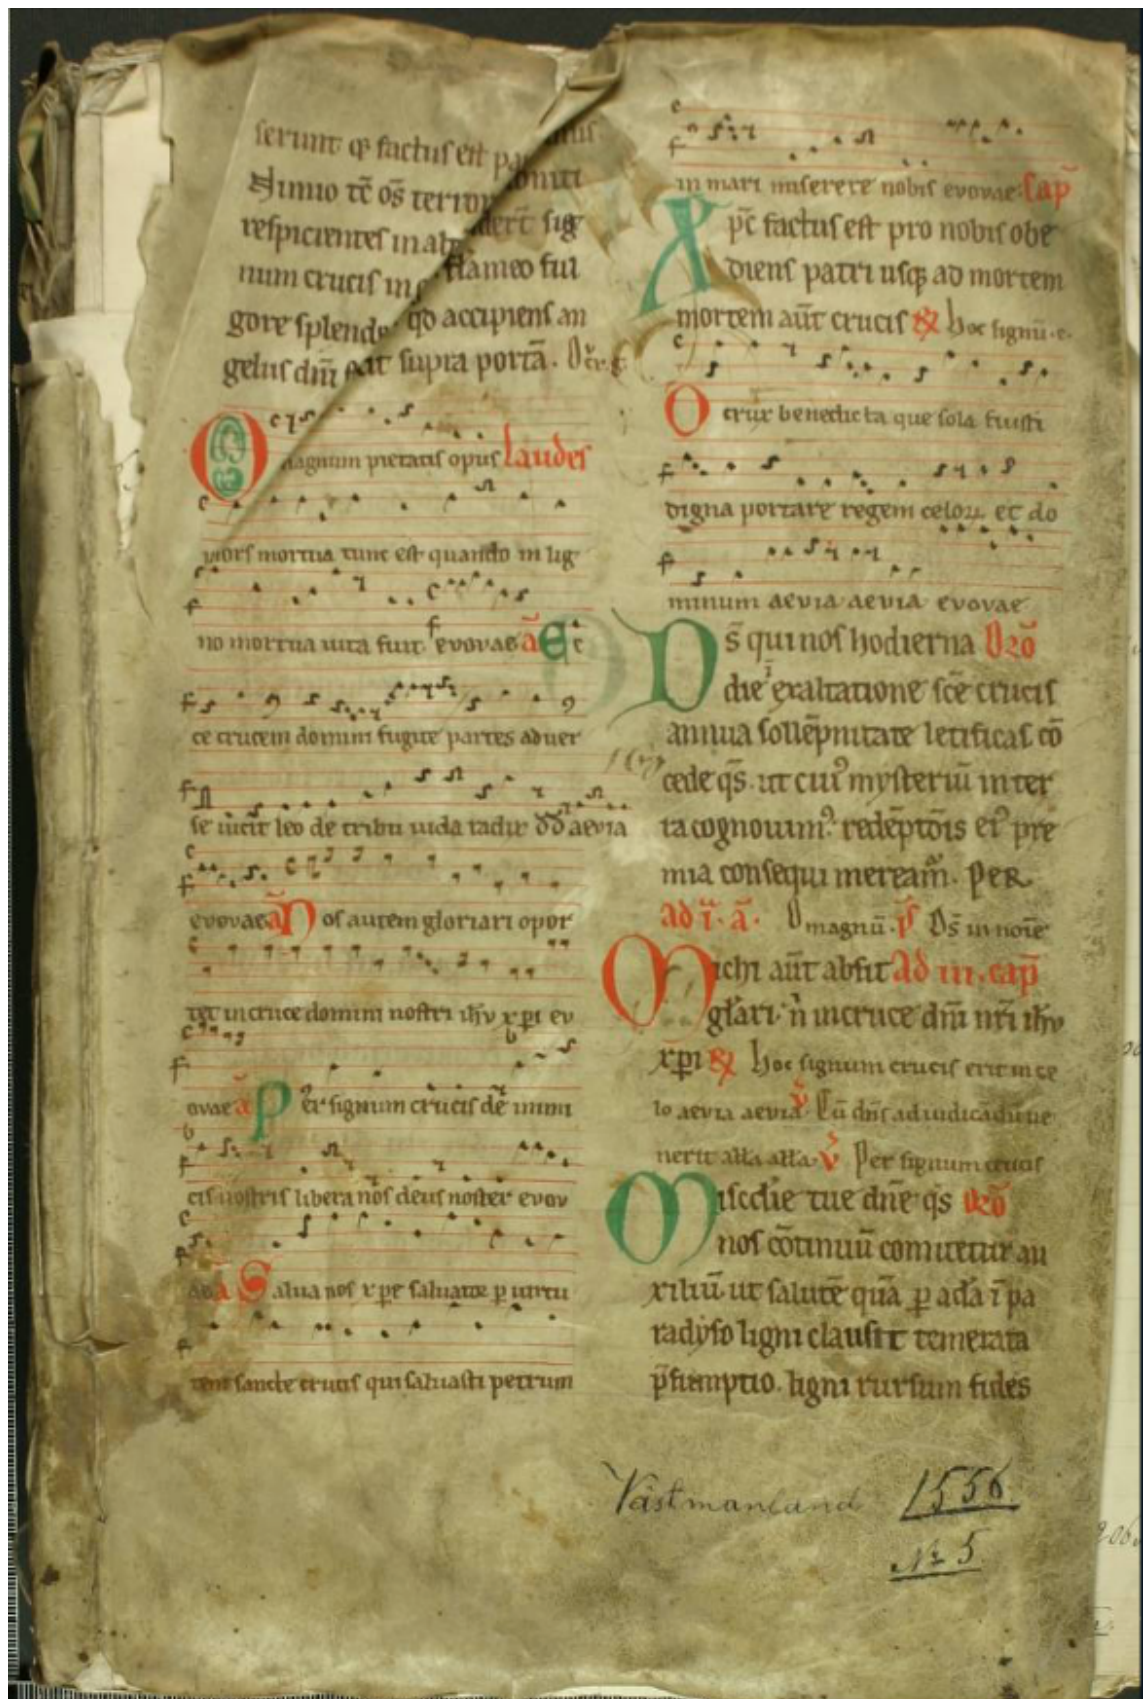 serunt qđ factus est
Ammo tc̄ os̄ terror
respicientes in alt dert sig
num crucis in flameo ful
gore splende qđ accipiens an
gelus dn̄i supra portā.
O magnum pietatis opus Laudes
mors mortua tunc est quando in lig
no mortua uita fuit evovae ā Ec
ce crucem domini fugite partes aduer
se uicit leo de tribu iuda radix dd aevia
evovae ā Nos autem gloriari opor
tet in cruce domini nostri ihv xpi ev
ovae ā Per signum crucis de inimi
cis nostris libera nos deus noster evov
ae ā Salua nos xpe saluator p uirtu
tem sancte crucis qui saluasti petrum
in mari miserere nobis evovae cap̄
Xpc̄ factus est pro nobis obe
diens patri usq; ad mortem
mortem aūt crucis ℟ hoc signū. c.
O crux benedicta que sola fuisti
digna portare regem celoꝝ et do
minum aevia aevia evovae
Ds̄ qui nos hodierna Orō
die exaltatione sc̄e crucis
annua sollēpnitate letificas cō
cede qs̄. ut cui᾽ mysteriū in ter
ra cognouim᾽ redēptōis ei᾽ pre
mia consequi meream̄. Per
ad i. ā. O magnū. ps̄ Ds̄ in noīe
Michi aūt absit Ad iii. cap̄
gl̄ari n̄ in cruce dn̄i nr̄i ihv
xp̄i ℟ hoc signum crucis erit in ce
lo aevia aevia ℣ Cū dn̄s ad iudicādū ue
nerit alla alla ℣ Per signum crucis
Misc̄die tue dn̄e qs̄ Orō
nos cōtinuū comitetur au
xiliū ut salutē quā ꝑ adā ī pa
radyso ligni clausit temerata
p̄sumptio. ligni rursum fides
Västmanland 1556.
№ 5